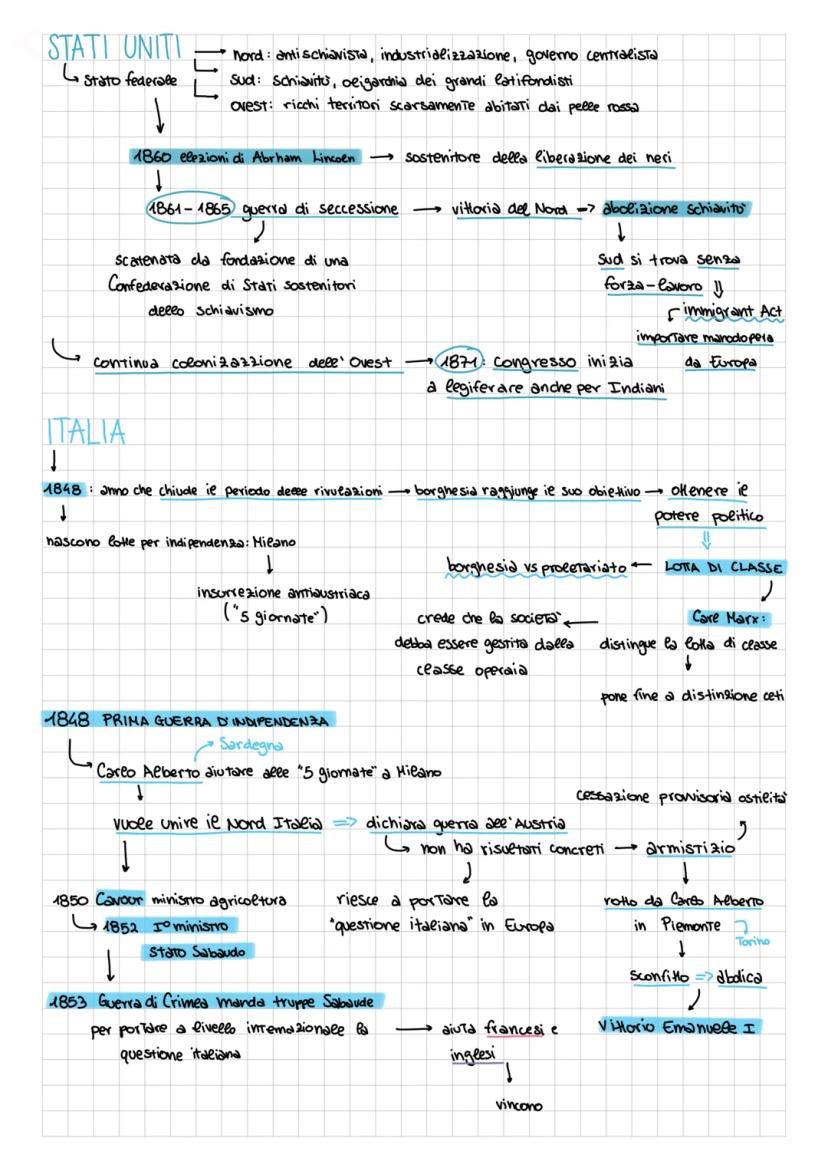 STATI UNITI → nord: antischiavista, industrializzazione, governo centralista
↳ Stato federale → sud: schiavitù, oligarchia dei grandi latifondisti
ovest: ricchi territori scarsamente abitati dai pelle rossa
1860 elezioni di Abrham Lincoln → sostenitore della liberazione dei neri
1861-1865 guerra di seccessione → vittoria del Nord => abolizione schiavitù
scatenata da fondazione di una
Confederazione di Stati sostenitori
dello schiavismo
sud si trova senza
forza-lavoro ⇓
immigrant Act
importare manodopera
da Europa
↳ continua colonizazzione dell'Ovest → 1871: Congresso inizia
a legiferare anche per Indiani
ITALIA
↓
1848: anno che chiude il periodo delle rivulazioni → borghesia raggiunge il suo obiettivo → ottenere il
potere politico
⇓
nascono lotte per indipendenza: Milano
↓
insurrezione antiaustriaca
("5 giornate")
borghesia vs proletariato ← LOTTA DI CLASSE
Carl Marx:
distingue la lotta di classe
↓
pone fine a distinzione ceti
crede che la società ←
debba essere gestita dalla
classe operaia
1848 PRIMA GUERRA D'INDIPENDENZA
→ Sardegna
↳ Carlo Alberto aiutare alle "5 giornate" a Milano
↓
vuole unire il Nord Italia => dichiara guerra all'Austria
↳ non ha risultati concreti → armistizio
cessazione provvisoria ostilità
riesce a portare la
"questione italiana" in Europa
rotto da Carlo Alberto
in Piemonte
Torino
↓
sconfitto => abdica
Vittorio Emanuele I
1850 Cavour ministro agricoltura
↳ 1852 I° ministro
Stato Sabaudo
↓
1853 Guerra di Crimea manda truppe Sabaude
per portare a livello internazionale la
questione italiana
→ aiuta francesi e
inglesi
↓
vincono